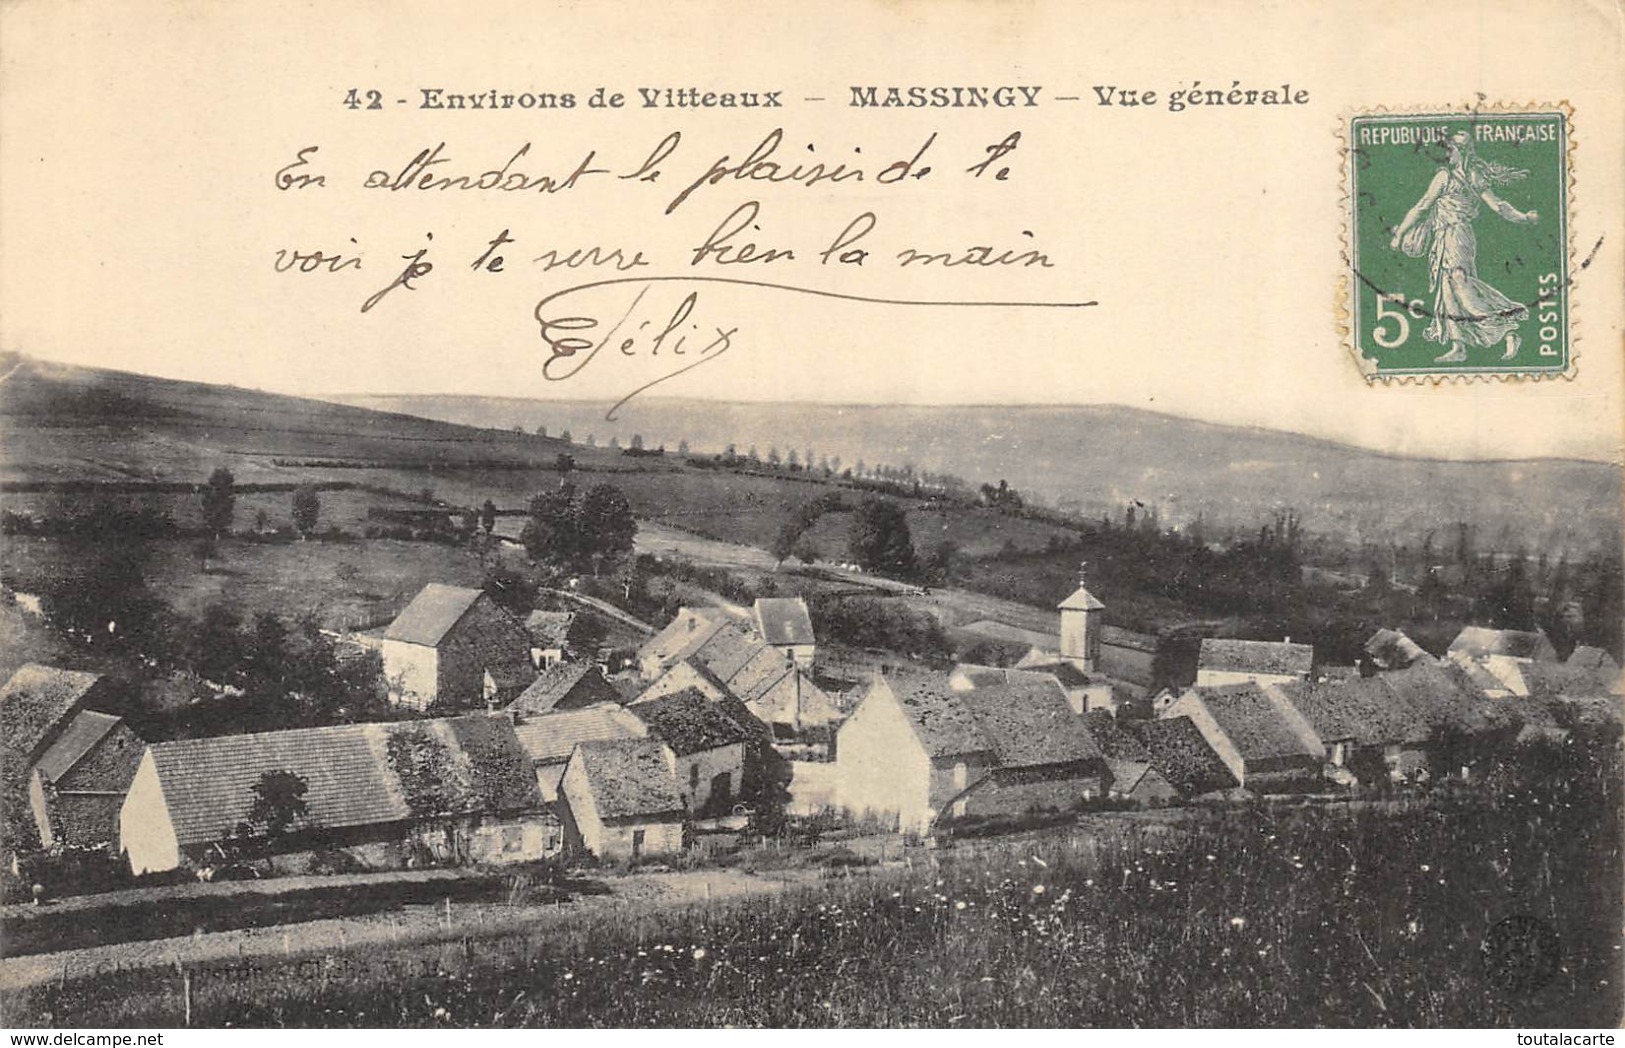 42 - Environs de Vitteaux — MASSINGY — Vue générale
En attendant le plaisir de te
voir je te serre bien la main
Félix
REPUBLIQUE FRANÇAISE
5c
POSTES
delcampe.net
toutalacarte